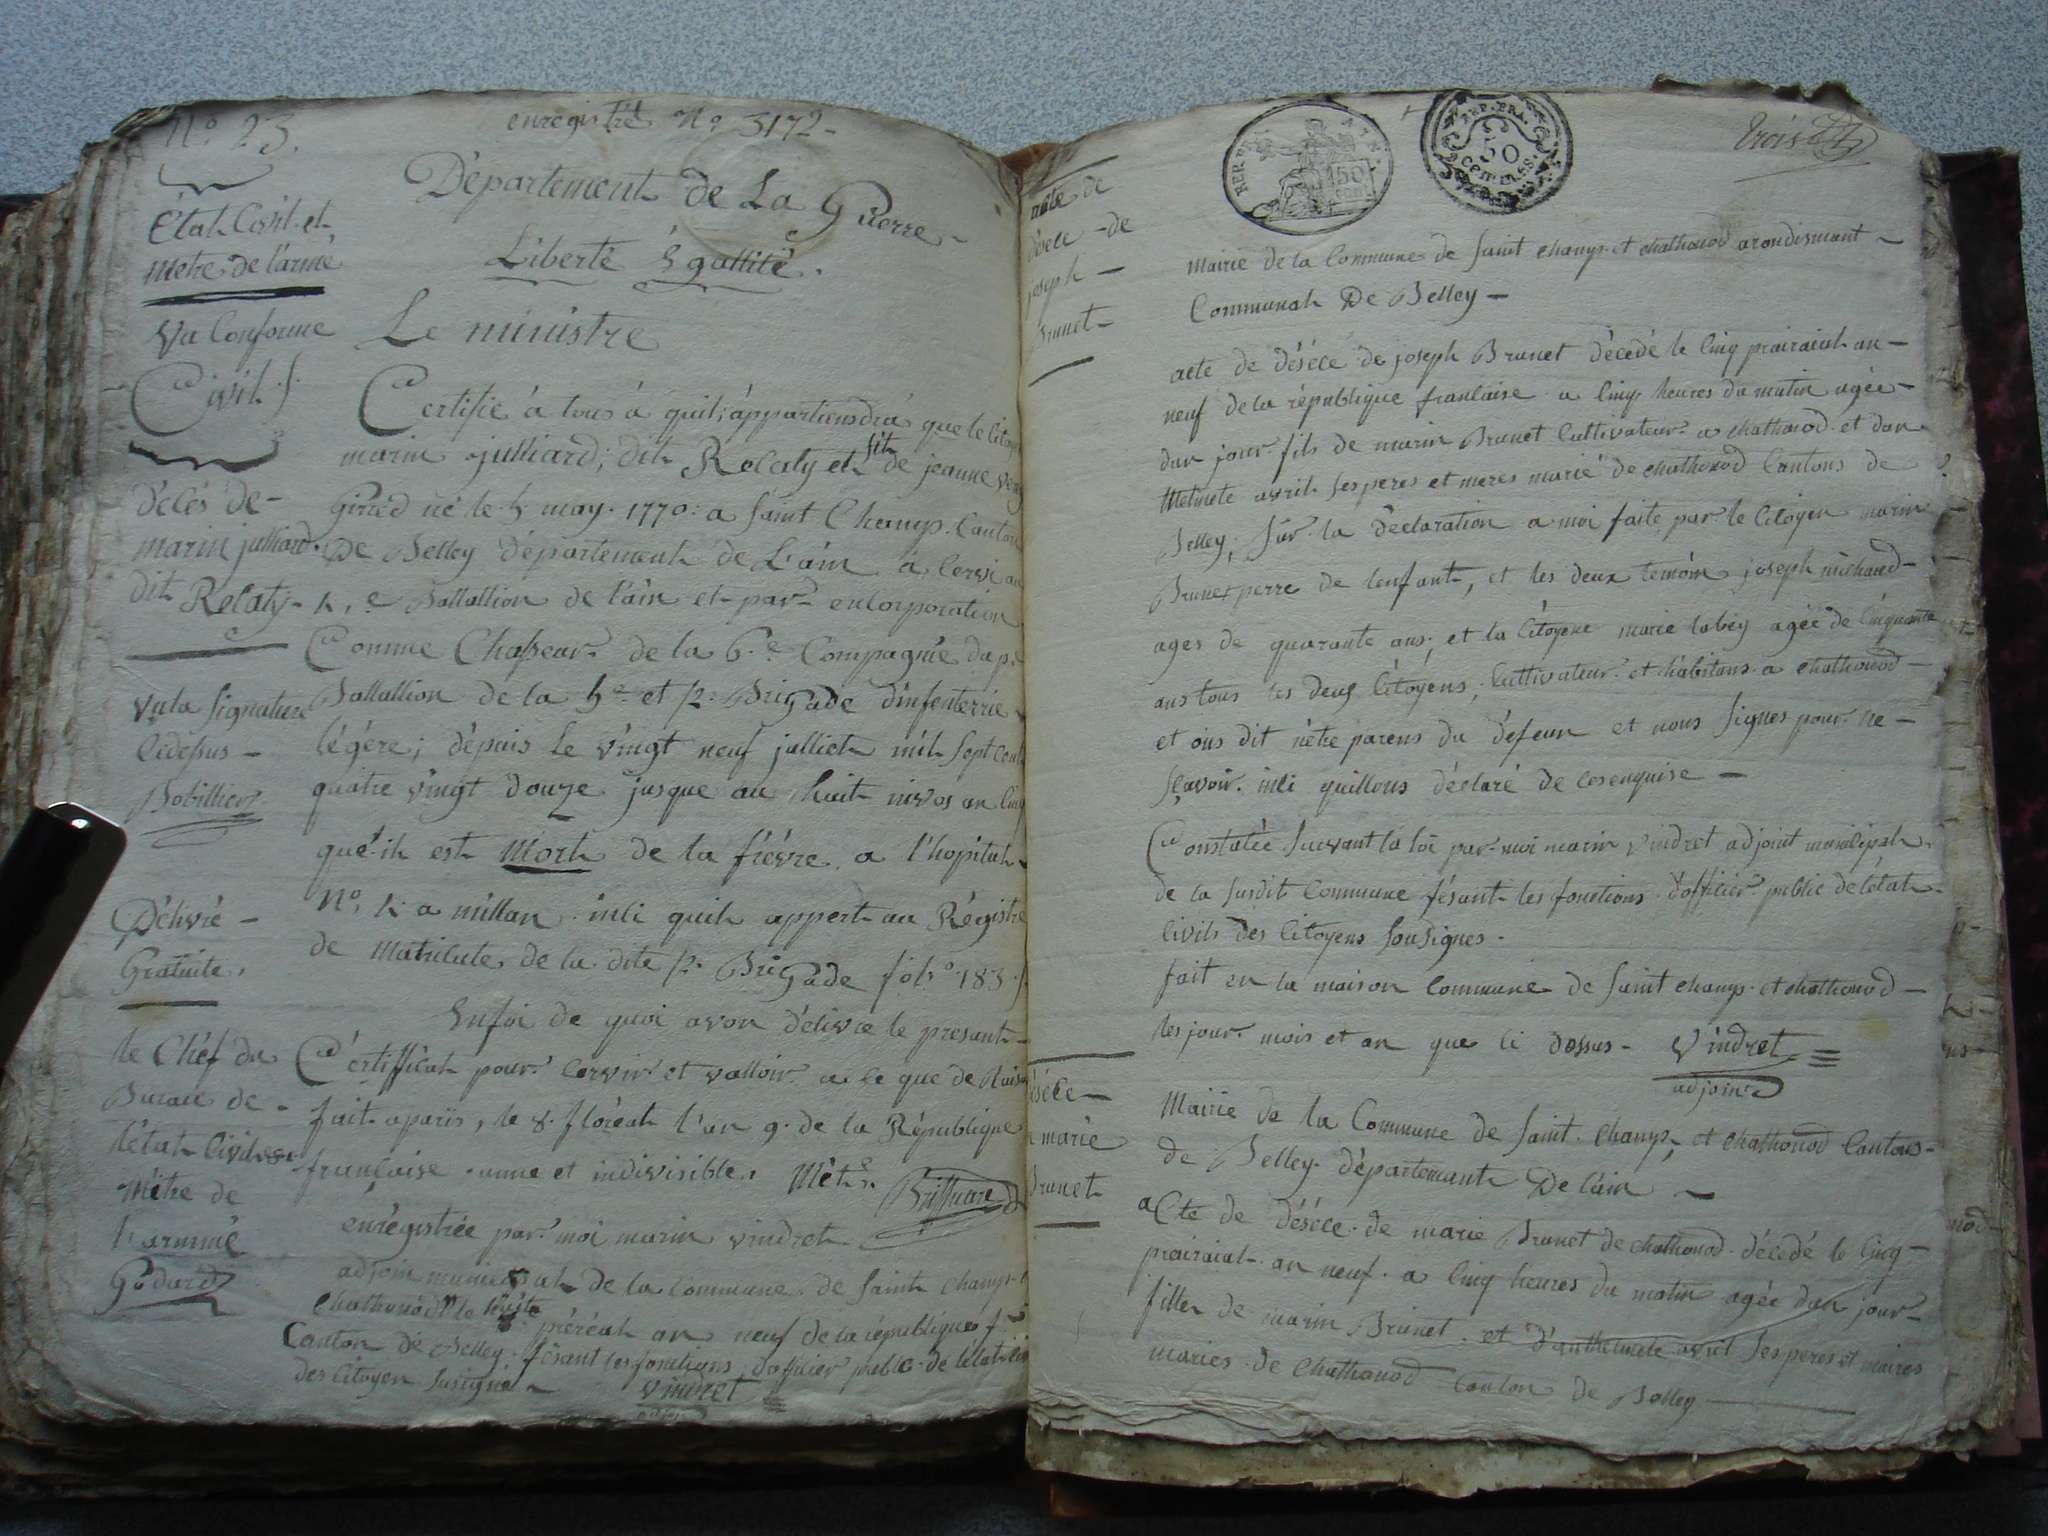 N.o 23.
enregistré N.o 3172-
Département de La Guerre-
Liberté Égallité.
État Civil et
Metre de l'armé
Le ministre
Va Conforme
Civil.
Certifie à tous à quil; áppartiendra que le Citoyen
marin julliard; dit Relaty et fils de jeanne
Girred né le 5 may. 1770: a Saint Champ. Canton
De Belley département de L'ain à Cervi au
4.e Battallion de l'ain et par encorporation
Comme Chasseur de la 6.e Compagnie du p.r
Battallion de la 5.e et 1/2 Brigade d'infenterrie
légére; dépuis le vingt neuf julliet mil sept cent
quatre vingt douze jusque au huit nivos an cinq
qué il est Mort de la fiévre a l'hopital
N.o 4 a millan. inci quil appert au Régistre
de Matricule de la dite 1/2 Brigade fol.o 183.
Décés de-
marin julliard.
dit Relaty-
Vu la Signature
Cidessus-
Bobillier
Délivré-
Gratuite.
Enfoi de quoi avon délivre le presant-
Certifficat pour Cervir et valloir a ce que de Raison
fait a paris, le 8. floréat l'an 9. de la République
française unne et indivisible.
le Chéf du
Bureau de-
l'état Civil et
Métre de
l'armmé
Godard
enrégistrée par moi marin vindret
adjoin municipal de la Commune de Saint Champ. et
Chathonod le préréal an neuf de la république f.se
Canton de Belley. fésant les fonctions d'officier public de létat civil
des Citoyen Susigné-
vindret
adjoin
Trois
REP. FRA.
50
CENTIMES.
acte de
désece - de
joseph-
Brunet-
Mairie de la Commune de Saint Champ. et chathonod arondismant-
Communal De Belley-
acte de désécé de joseph Brunet décedé le cinq prairaial an-
neuf de la république francaise a cinq heures du matin agée-
dun jour. fils de marin Brunet Cultivateur a chathonod. et dan
thelmete avril ses peres et meres marié de chathonod Cantons de
Belley, Sur la déclaration a moi faite par le Citoyen marin
Brunet perre de lenfant, et les deux temoin joseph michaud-
ages de quarante ans; et la Citoyene marie labey agée de cinquante
ans tous les deux Citoyens; Cultivateur et habitans a chathonod-
et ons dit nétre parens du défeun et nous signes pour ne-
sçavoir. inci quillons déclaré de cesenquise-
Constatée Suivant la loi par moi marin vindret adjoint municipah.
de la Susdit Commune fésant les fonctions d'officier public de létat
Civils des Citoyens Sousignes.
fait en la maison Commune de Saint champ. et chathonod-
les jour mois et an que ci dessus- Vindret
adjoint
désécé-
marie
Brunet
Mairie de la Commune de Saint. champ, et chathonod Cantons-
de Belley département De lain-
acte de désécé de marie Brunet de chathonod. décedé le cinq-
prairaial an neuf. a cinq heures du matin agée dun jour-
fille de marin Brunet. et d'anthelmete avril ses peres et maires
maries de chathonod Canton de Belley